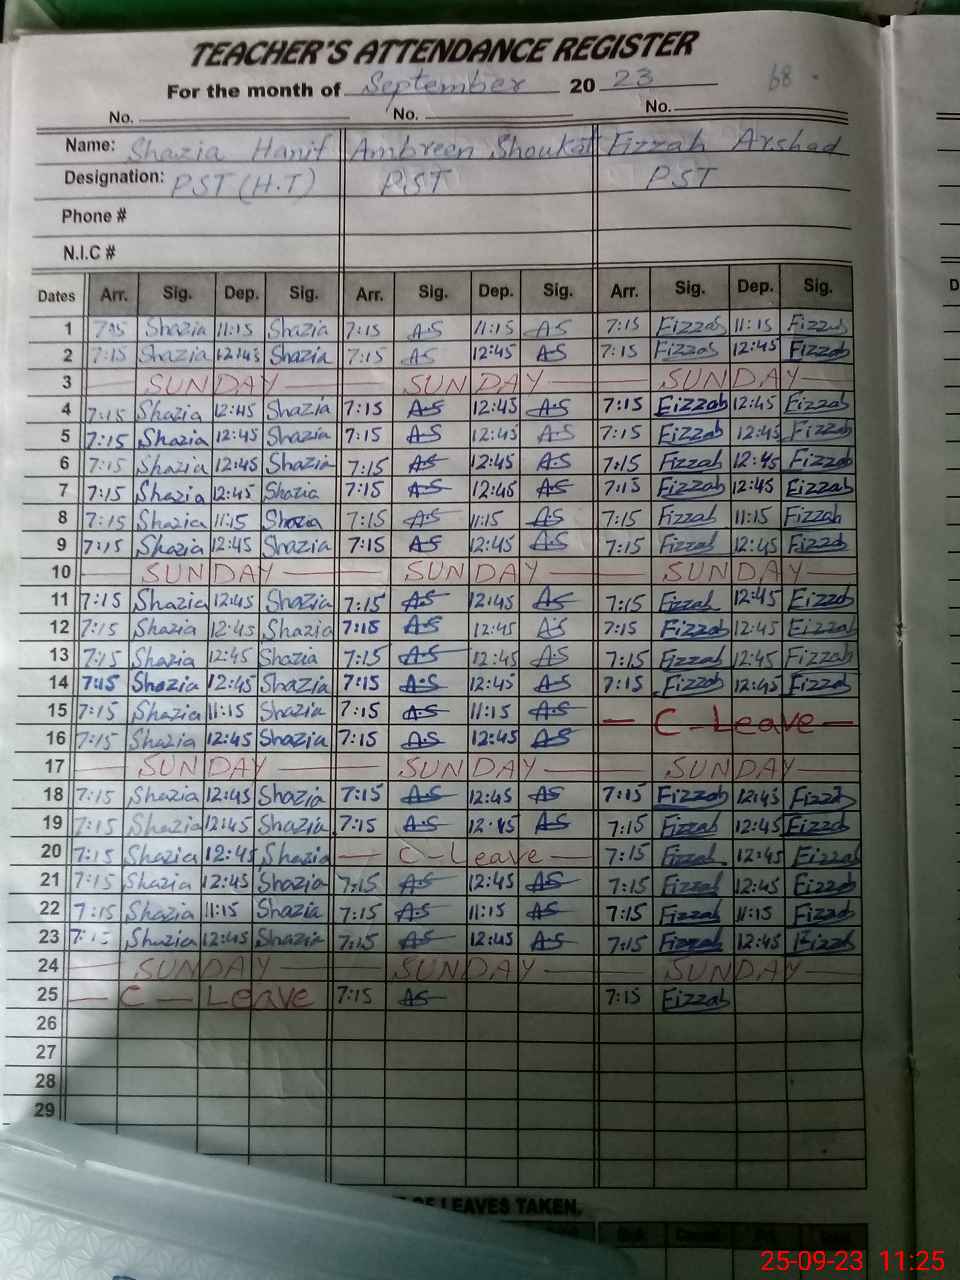 TEACHER'S ATTENDANCE REGISTER
For the month of September 20 23 68
No. No. No.
Name: Shazia Hanif Ambreen Shoukat Fizzah Arshad
Designation: PST (H.T) PST PST
Phone #
N.I.C #
Dates Arr. Sig. Dep. Sig. Arr. Sig. Dep. Sig. Arr. Sig. Dep. Sig.
1 7:15 Shazia 11:15 Shazia 7:15 A.S 11:15 A.S 7:15 Fizzah 11:15 Fizzah
2 7:15 Shazia 12:45 Shazia 7:15 A.S 12:45 A.S 7:15 Fizzah 12:45 Fizzah
3 SUNDAY SUNDAY SUNDAY
4 7:15 Shazia 12:45 Shazia 7:15 A.S 12:45 A.S 7:15 Fizzah 12:45 Fizzah
5 7:15 Shazia 12:45 Shazia 7:15 A.S 12:45 A.S 7:15 Fizzah 12:45 Fizzah
6 7:15 Shazia 12:45 Shazia 7:15 A.S 12:45 A.S 7:15 Fizzah 12:45 Fizzah
7 7:15 Shazia 12:45 Shazia 7:15 A.S 12:45 A.S 7:15 Fizzah 12:45 Fizzah
8 7:15 Shazia 11:15 Shazia 7:15 A.S 11:15 A.S 7:15 Fizzah 11:15 Fizzah
9 7:15 Shazia 12:45 Shazia 7:15 A.S 12:45 A.S 7:15 Fizzah 12:45 Fizzah
10 SUNDAY SUNDAY SUNDAY
11 7:15 Shazia 12:45 Shazia 7:15 A.S 12:45 A.S 7:15 Fizzah 12:45 Fizzah
12 7:15 Shazia 12:45 Shazia 7:15 A.S 12:45 A.S 7:15 Fizzah 12:45 Fizzah
13 7:15 Shazia 12:45 Shazia 7:15 A.S 12:45 A.S 7:15 Fizzah 12:45 Fizzah
14 7:15 Shazia 12:45 Shazia 7:15 A.S 12:45 A.S 7:15 Fizzah 12:45 Fizzah
15 7:15 Shazia 11:15 Shazia 7:15 A.S 11:15 A.S — C - Leave —
16 7:15 Shazia 12:45 Shazia 7:15 A.S 12:45 A.S
17 SUNDAY SUNDAY SUNDAY
18 7:15 Shazia 12:45 Shazia 7:15 A.S 12:45 A.S 7:15 Fizzah 12:45 Fizzah
19 7:15 Shazia 12:45 Shazia 7:15 A.S 12:45 A.S 7:15 Fizzah 12:45 Fizzah
20 7:15 Shazia 12:45 Shazia — C - Leave — 7:15 Fizzah 12:45 Fizzah
21 7:15 Shazia 12:45 Shazia 7:15 A.S 12:45 A.S 7:15 Fizzah 12:45 Fizzah
22 7:15 Shazia 11:15 Shazia 7:15 A.S 11:15 A.S 7:15 Fizzah 11:15 Fizzah
23 7:15 Shazia 12:45 Shazia 7:15 A.S 12:45 A.S 7:15 Fizzah 12:45 Fizzah
24 SUNDAY SUNDAY SUNDAY
25 — C — Leave 7:15 A.S 7:15 Fizzah
26
27
28
29
OF LEAVES TAKEN.
25-09-23 11:25